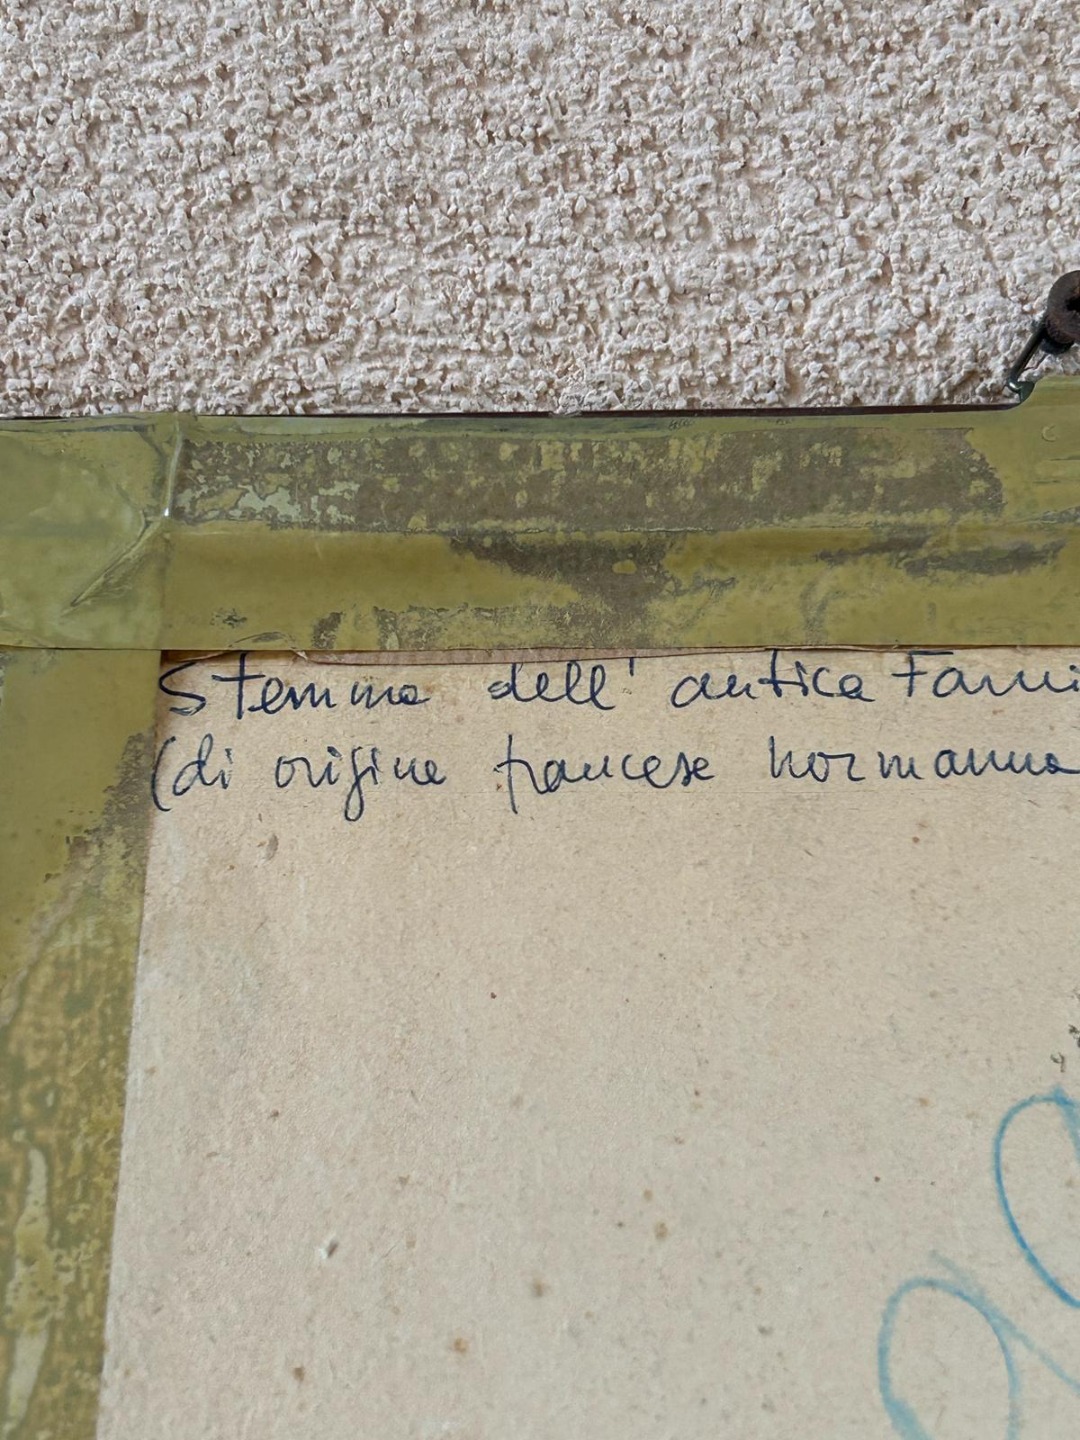 Stemma dell' antica Fami
(di origine francese normanna